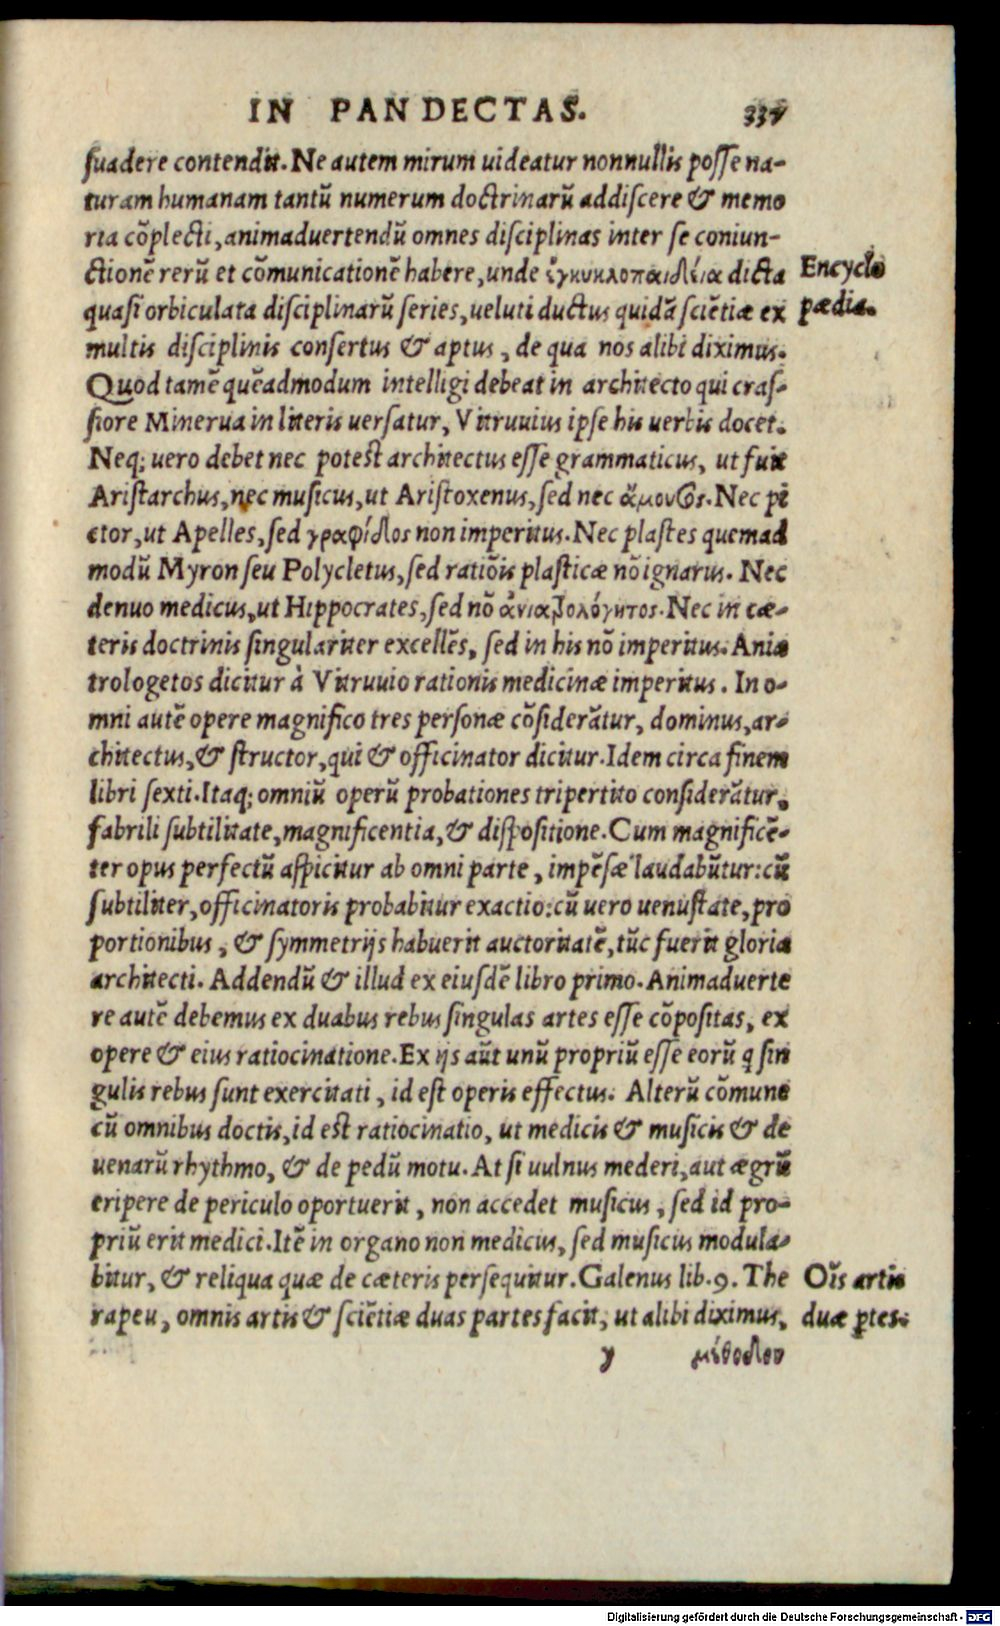 IN PANDECTAS. 337
suadere contendit. Ne autem mirum uideatur nonnullis posse na-
turam humanam tantũ numerum doctrinarũ addiscere & memo
ria cõplecti, animaduertendũ omnes disciplinas inter se coniun-
ctionẽ rerũ et cõmunicationẽ habere, unde ἐγκυκλοπαιδεία dicta
Encyclo
quasi orbiculata disciplinarũ series, ueluti ductus quidã sciẽtiæ ex
pædia.
multis disciplinis consertus & aptus, de qua nos alibi diximus.
Quod tamẽ quẽadmodum intelligi debeat in architecto qui cras-
siore Minerua in literis uersatur, Vitruuius ipse his uerbis docet.
Neq; uero debet nec potest architectus esse grammaticus, ut fuit
Aristarchus, nec musicus, ut Aristoxenus, sed nec ἄμουσος. Nec pi
ctor, ut Apelles, sed γραφίδος non imperitus. Nec plastes quemad
modũ Myron seu Polycletus, sed ratiõis plasticæ nõ ignarus. Nec
denuo medicus, ut Hippocrates, sed nõ ἀνιατρολόγητος. Nec in cæ-
teris doctrinis singulariter excellẽs, sed in his nõ imperitus. Ania
trologetos dicitur à Vitruuio rationis medicinæ imperitus. In o-
mni autẽ opere magnifico tres personæ cõsiderãtur, dominus, ar-
chitectus, & structor, qui & officinator dicitur. Idem circa finem
libri sexti. Itaq; omniũ operũ probationes tripertito considerãtur,
fabrili subtilitate, magnificentia, & dispositione. Cum magnificẽ-
ter opus perfectũ aspicitur ab omni parte, impẽsæ laudabũtur: cũ
subtiliter, officinatoris probabitur exactio: cũ uero uenustate, pro
portionibus, & symmetrijs habuerit auctoritatẽ, tũc fuerit gloria
architecti. Addendũ & illud ex eiusdẽ libro primo. Animaduerte
re autẽ debemus ex duabus rebus singulas artes esse cõpositas, ex
opere & eius ratiocinatione. Ex ijs aũt unũ propriũ esse eorũ q sin
gulis rebus sunt exercitati, id est operis effectus. Alterũ cõmune
cũ omnibus doctis, id est ratiocinatio, ut medicis & musicis & de
uenarũ rhythmo, & de pedũ motu. At si uulnus mederi, aut ægrũ
eripere de periculo oportuerit, non accedet musicus, sed id pro-
priũ erit medici. Itẽ in organo non medicus, sed musicus modula-
bitur, & reliqua quæ de cæteris persequitur. Galenus lib. 9. The
Oĩs artis
rapeu, omnis artis & sciẽtiæ duas partes facit, ut alibi diximus,
duæ ꝑtes.
y μέθοδον
Digitalisierung gefördert durch die Deutsche Forschungsgemeinschaft - DFG